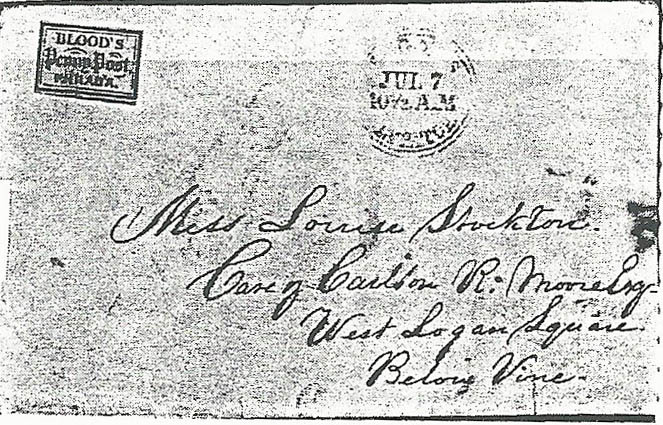 BLOOD'S
Penny Post,
PHILAD'A.
JUL 7
10½ A.M
Miss Louisa Stockton.
Care of Carlton R. Moore Esq.
West Logan Square
Below Vine.